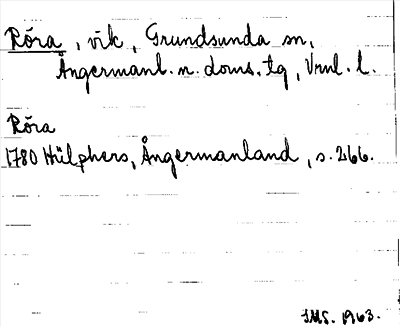 Röra, vik, Grundsunda sn,
Ångermanl. n. doms. tg, Vrnl. l.
Röra
1780 Hülphers, Ångermanland, s. 266.
IMS. 1963.